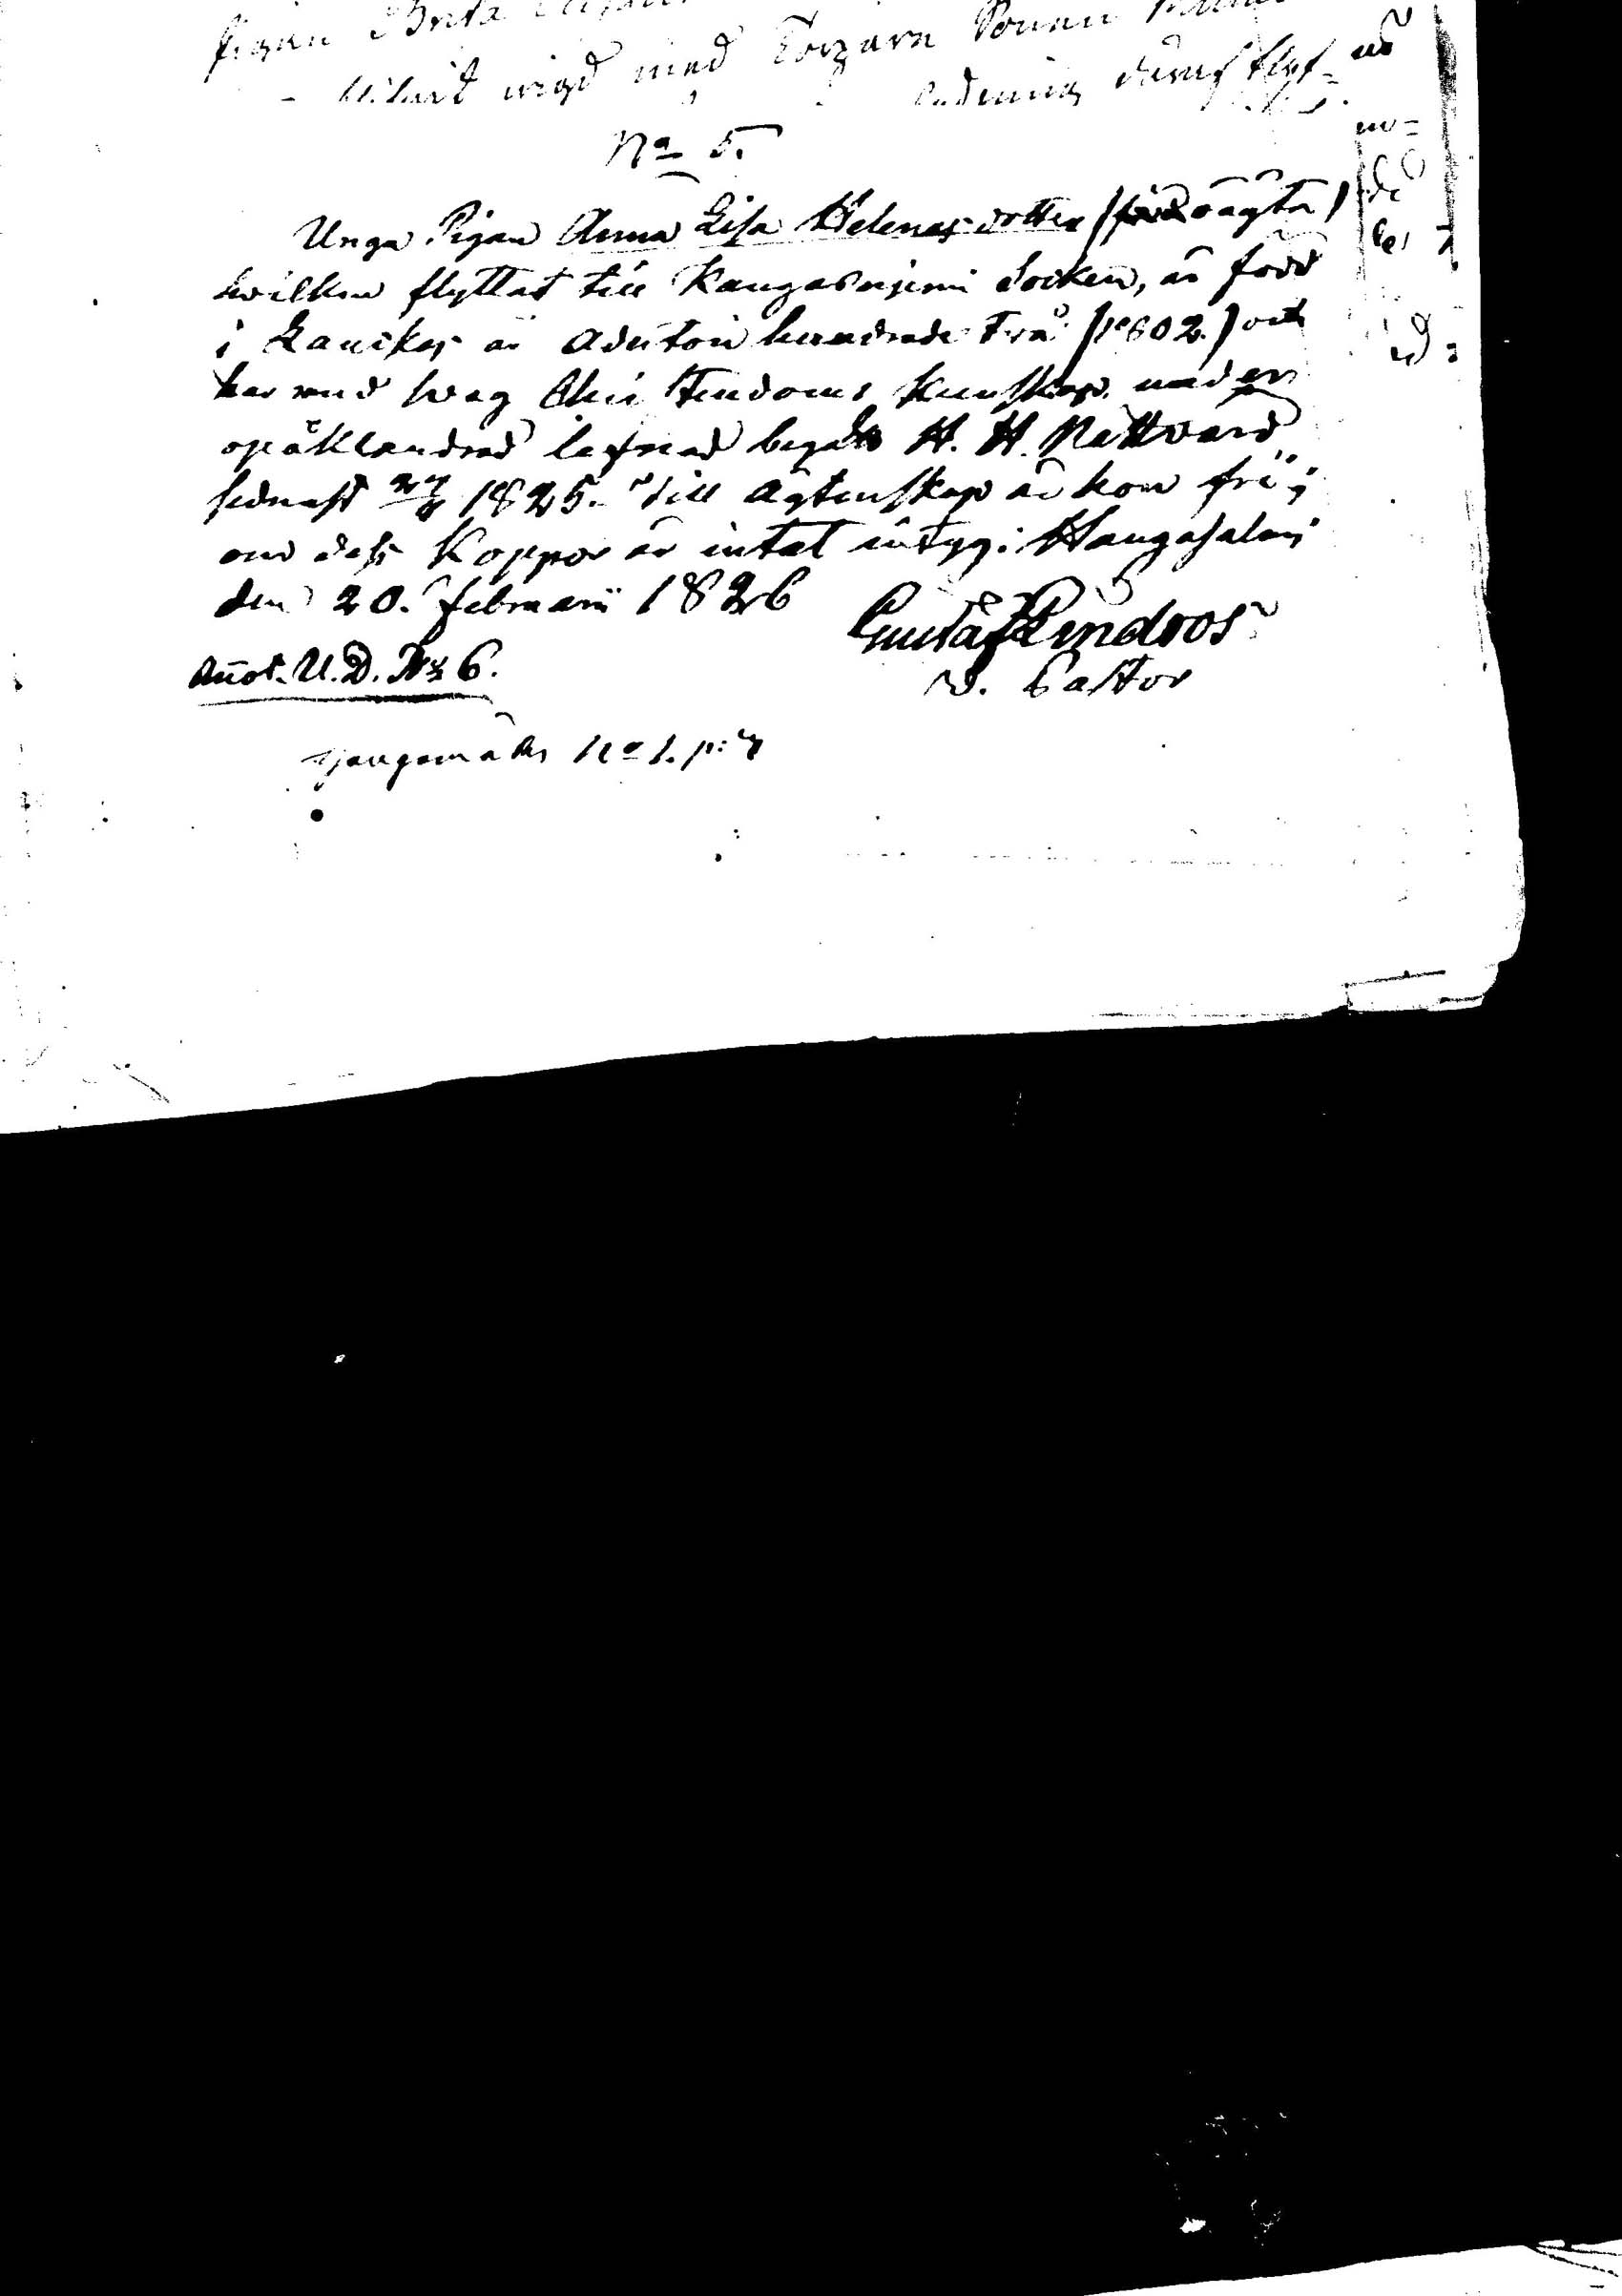 Pigan Brita
wigd med Torparn
No 5.
Unga Pigan Anna Lisa Helenas dotter / oägta /
hwilken flyttat till Kangasniemi Socken, är född
i Laukas år Adertonhundrade Två /1802./ och
har med swag Christendoms kunskap under
opåklandrad lefnad begått H. H. Nattvard
sednast 1825. Till Ägtenskap är hon fri;
om dess Koppor är intet intyg: Hangasalmi
den 20. Februarii 1826
Gustaf Lindroos
v. Pastor
Annot. U. D. No 6.
No 1. p: